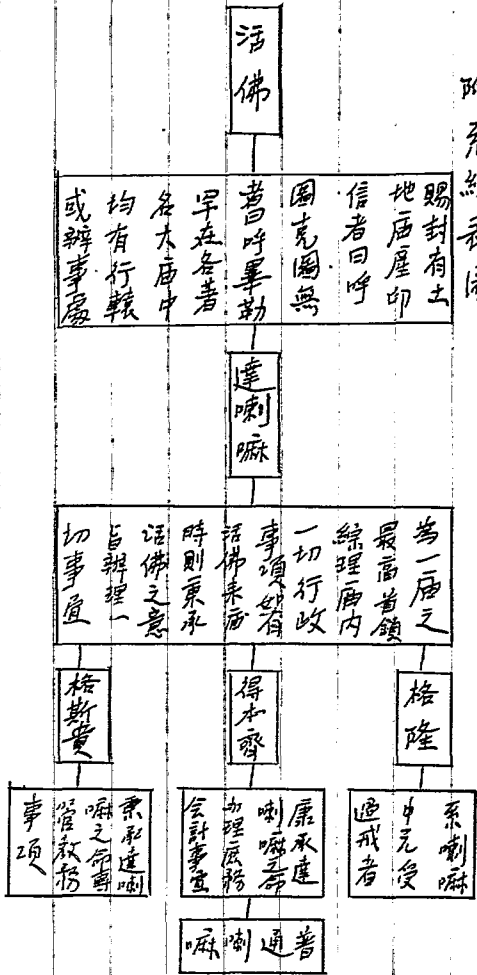 附系統表圖
活佛
賜封有土
地庙產印
信者曰呼
圖克圖無
者曰呼畢勒
罕在各著
名大庙中
均有行轅
或辦事處
達喇嘛
為一庙之
最高首領
綜理庙內
一切行政
事項如有
活佛来庙
時則秉承
活佛之意
旨辦理一
切事宜
格隆
系喇嘛
中元受
過戒者
得木齊
秉承達
喇嘛之命
办理庶務
会計事宜
格斯貴
秉承達喇
嘛之命專
管教務
事項
普通喇嘛